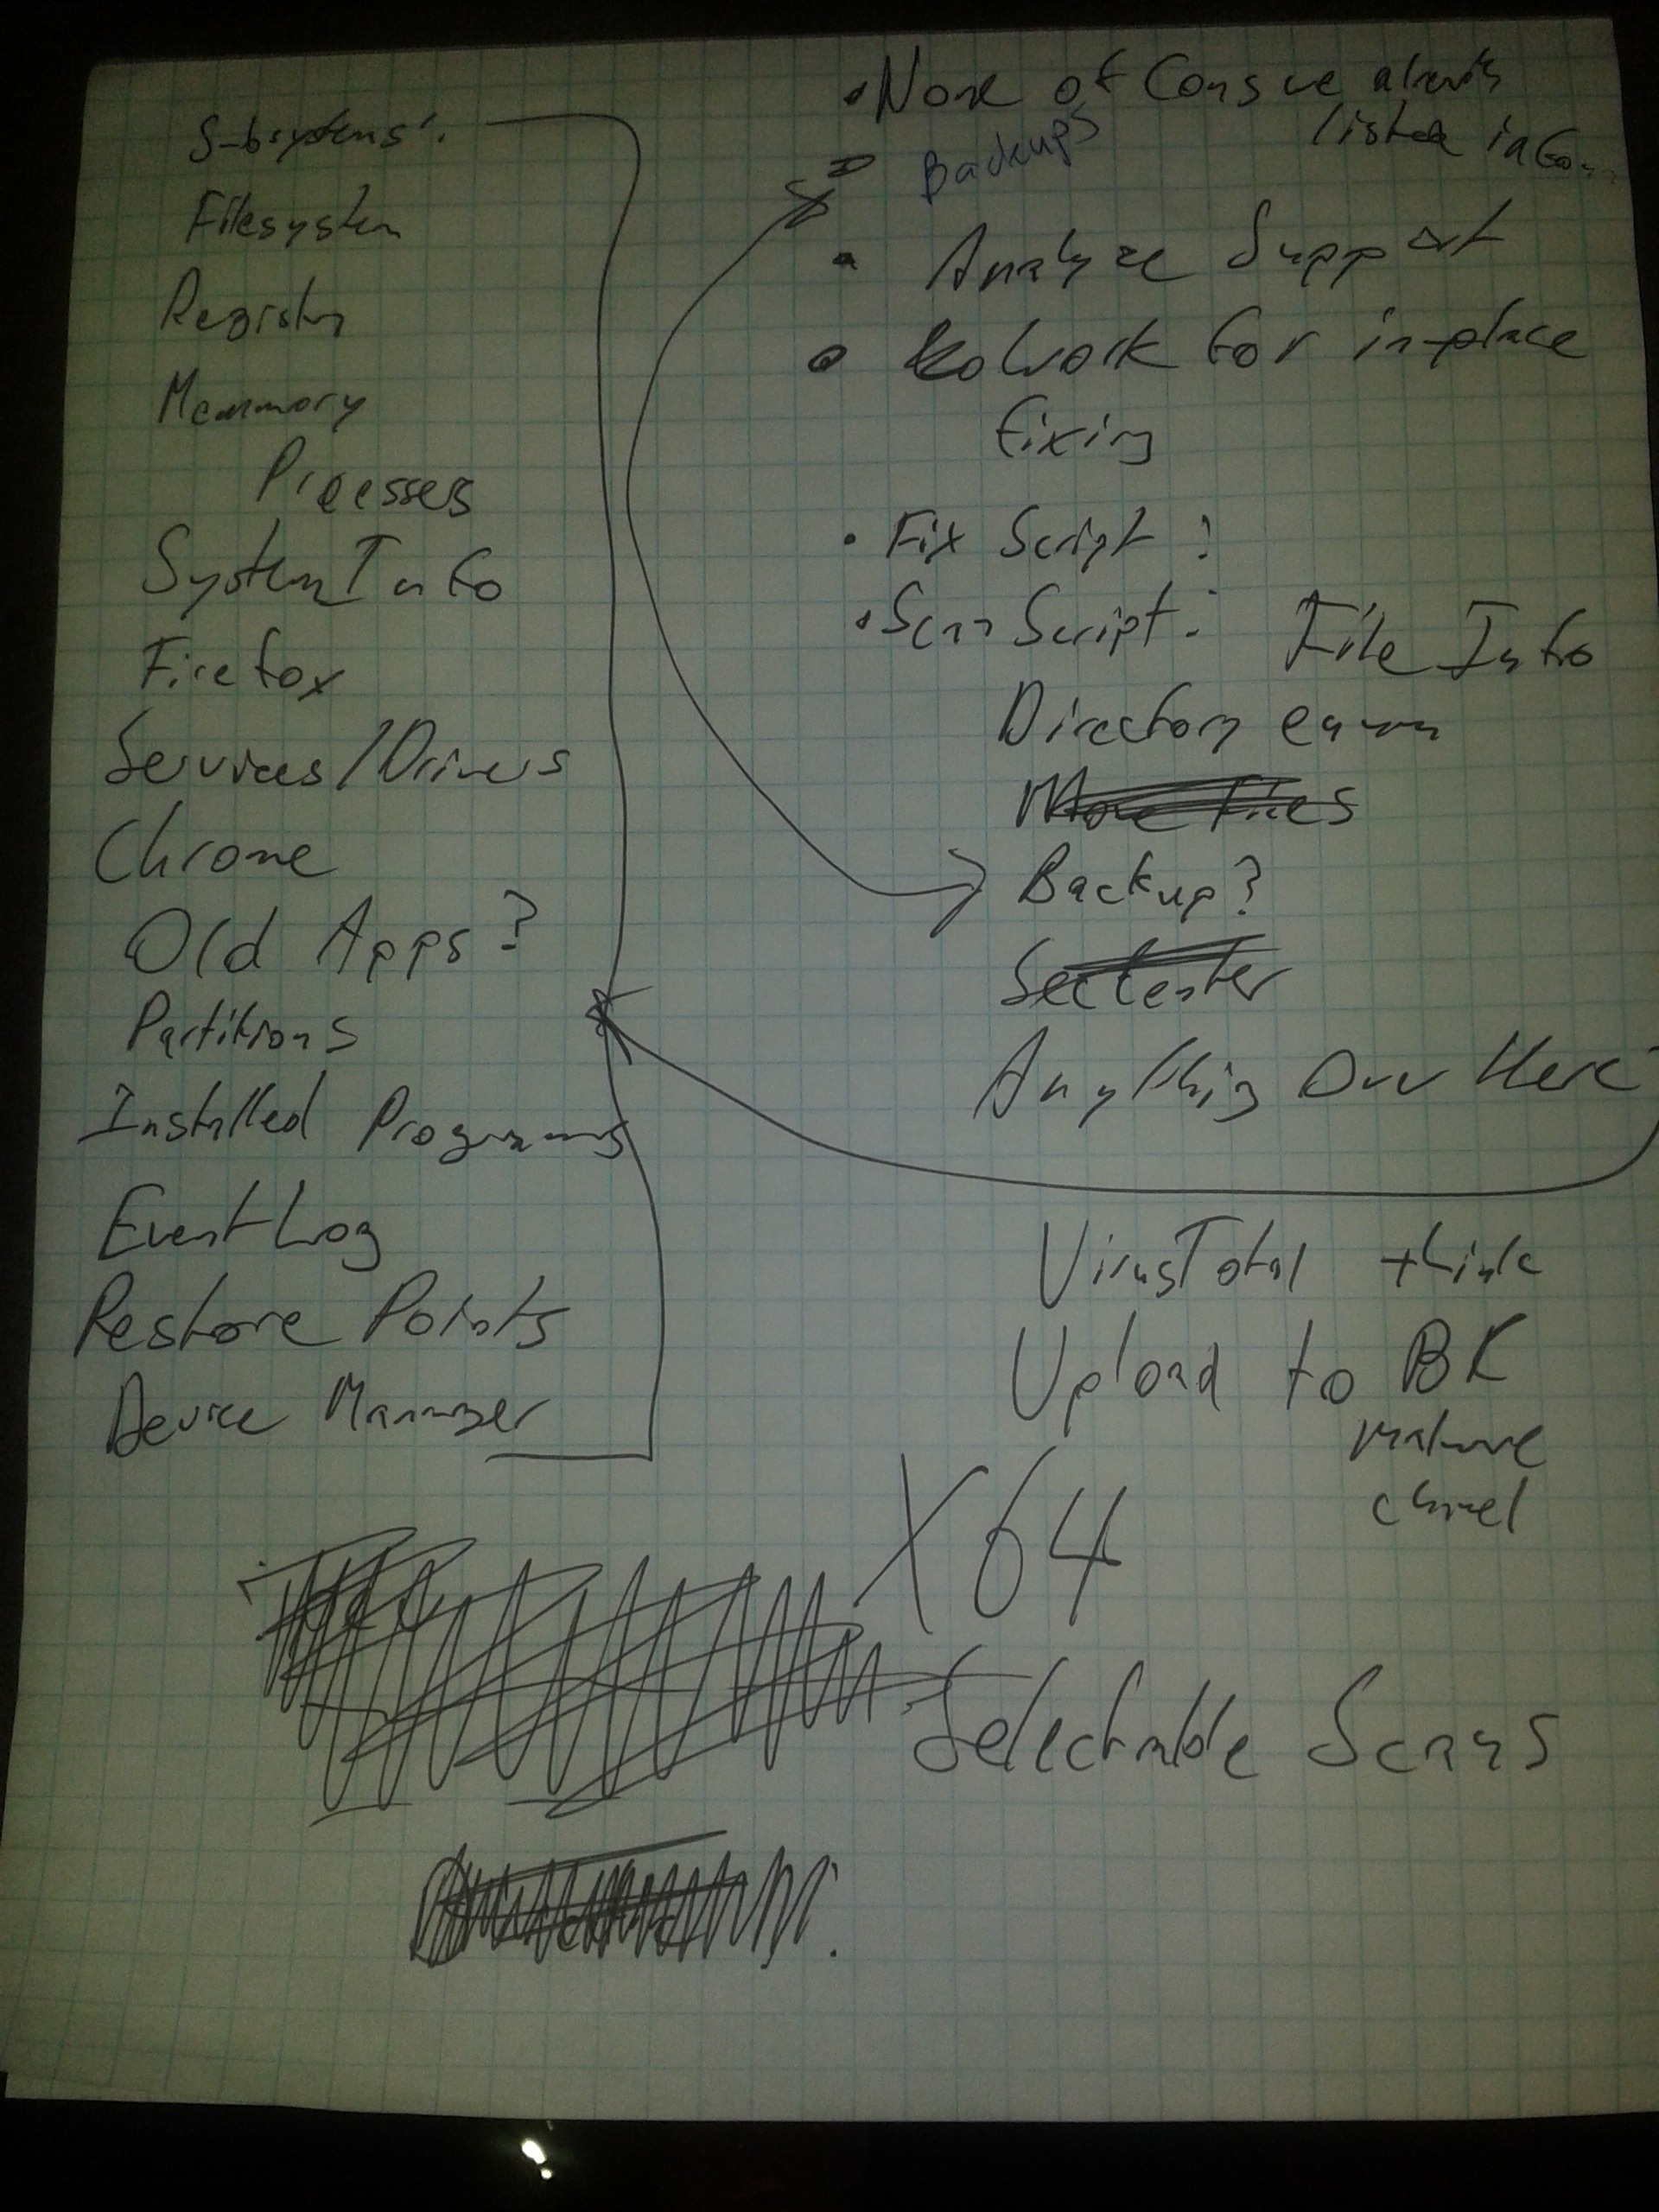 Subsystems:
Filesystem
Registry
Memmory
Processes
System Info
Firefox
Services/Drivers
Chrome
Old Apps?
Partitions
Installed Programs
Event Log
Restore Points
Device Manager
None of
listed in
Backups
Analyze Support
for in-place
fixing
Fix Script:
Scan Script: File Info
Directory enum
Move Files
Backup?
Anything Over Here
VirusTotal
Upload to BK
X64
Selectable Scans